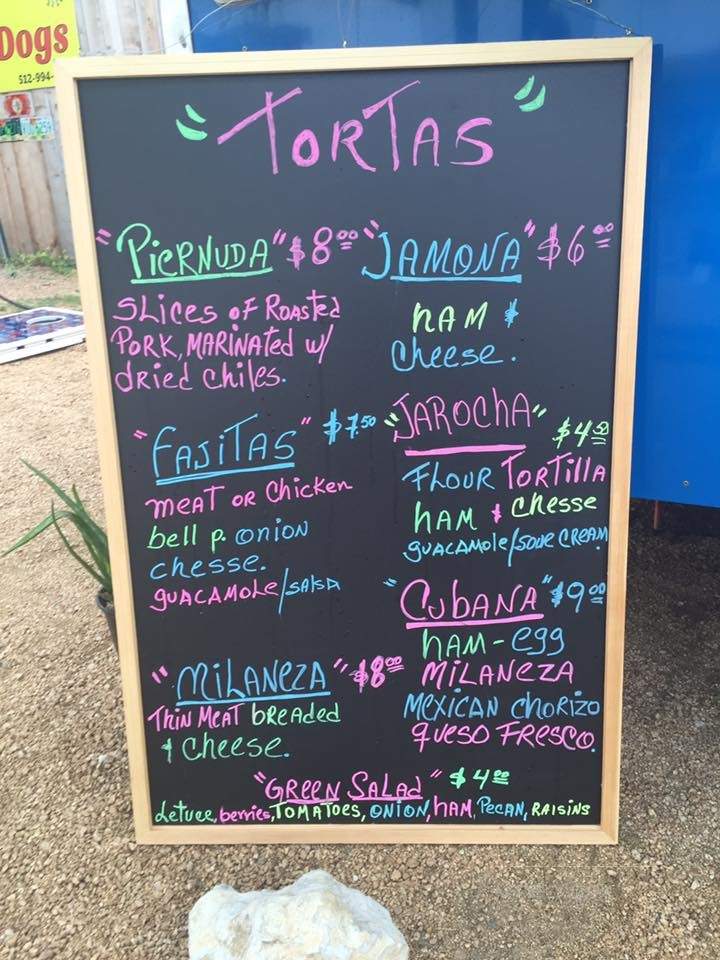 Dogs
512-994-
"TORTAS"
"PIERNUDA" $8.00
SLICES OF ROASTED
PORK, MARINATED W/
dRIED CHILES.
"JAMONA" $6.00
HAM &
Cheese.
"FAJITAS" $7.50
MEAT OR Chicken
bell p. ONION
CHESSE.
GUACAMOLE/SALSA
"JAROCHA" $4.50
FLOUR TORTILLA
HAM & CHESSE
GUACAMOLE/SOUR CREAM
"MILANEZA" $8.00
THIN MEAT bREADED
& CHEESE.
"CUBANA" $9.00
HAM-EGG
MILANEZA
MEXICAN CHORIZO
QUESO FRESCO.
"GREEN SALAD" $4.00
Letuce, berries, TOMATOES, ONION, HAM, PECAN, RAISINS